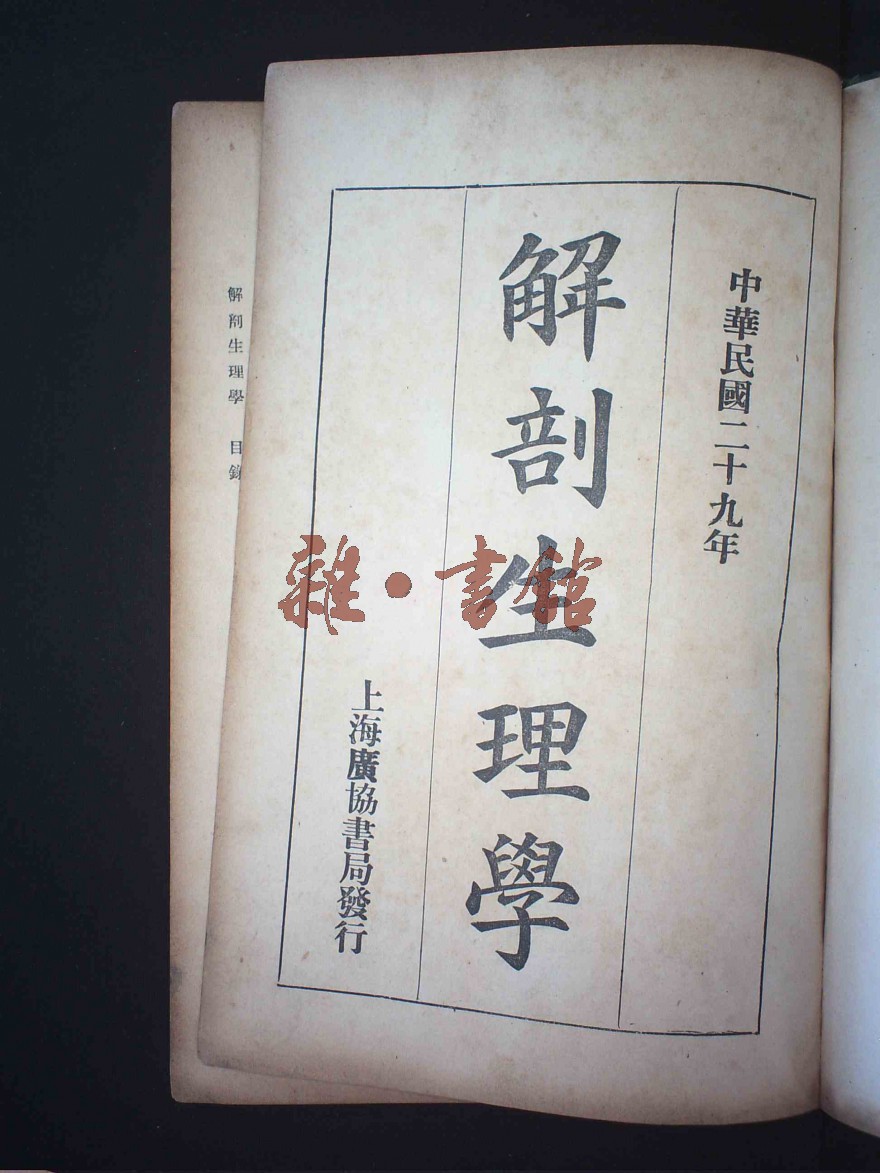 中華民國二十九年
解剖生理學
上海廣協書局發行
解剖生理學 目錄
雜·書館